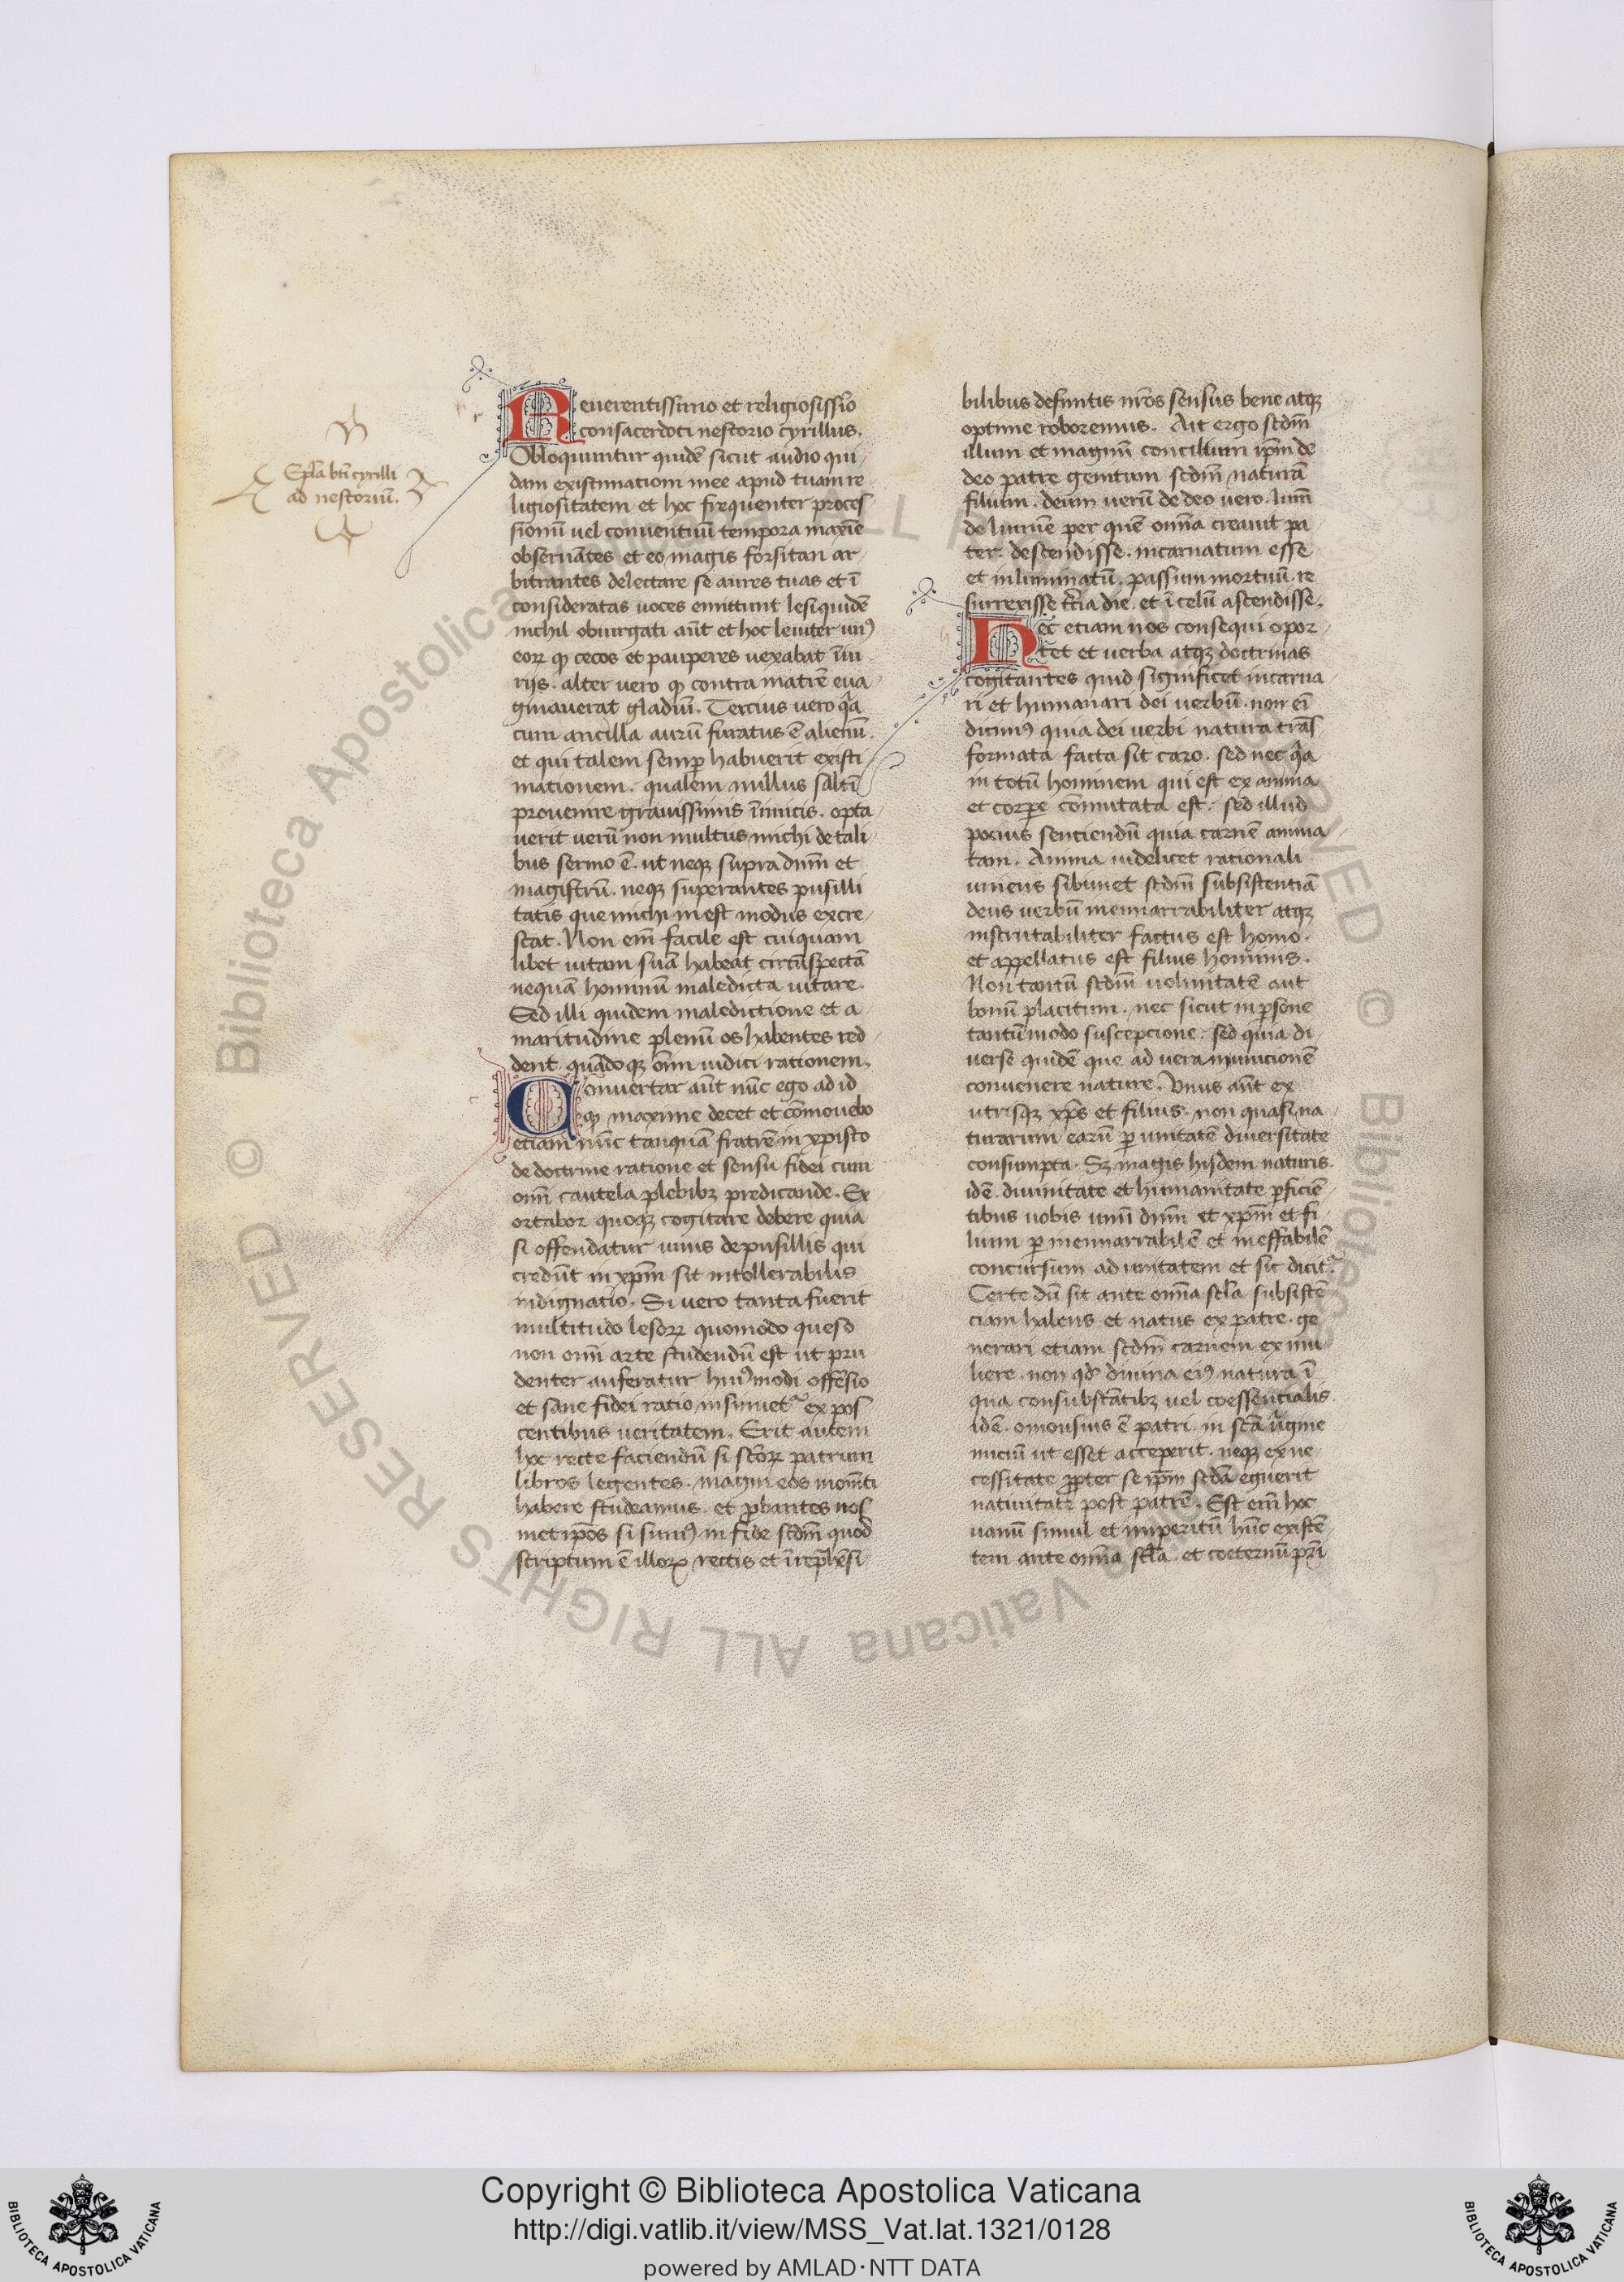 Epl̄a btī cyrilli
ad nestoriū.
Reuerentissimo et religiosissīo
consacerdoti nestorio cyrillus.
Obloquuntur quidē sicut audio qui
dam existimationi mee apud tuam re
ligiositatem et hoc frequenter proces
sionū uel conuentuū tempora maxīe
obseruātes et eo magis forsitan ar
bitrantes delectare se aures tuas et ī
consideratas uoces emittunt lesi quidē
nichil obiurgati aūt et hoc leuiter unꝰ
eorꝝ ꝙ cecos et pauperes uexabat īiu
rijs. alter uero ꝙ contra matrē eua
ginauerat gladiū. Tercius uero qͣa
cum ancilla aurū furatus ē alienū.
et qui talem semꝑ habuerit existi
mationem. qualem nullus saltī
prouenire grauissimis īimicis. opta
uerit uerū non multus michi de tali
bus sermo ē. ut neqꝫ supra dnm̄ et
magistrū. neqꝫ superantes pusilli
tatis que michi inest modus excre
scat. Non em̄ facile est cuiquam
libet uitam suā habeat circūspectā
nequā hominū maledicta uitare.
Sed illi quidem maledictione et a
maritudine plenū os habentes red
dent quādoqꝫ om̄i iudici rationem.
Conuertar aūt nūc ego ad id
ꝙ maxime decet et cōmouebo
etiam nūc tanquā fratrē in xpisto
de doctrine ratione et sensu fidei cum
om̄i cautela plebibꝫ predicande. Ex
ortabor quoqꝫ cogitare debere quia
si offendatur unus de pusillis qui
credūt in xp̄m sit intollerabilis
indignatio. Si uero tanta fuerit
multitudo lesorꝝ quomodo queso
non om̄i arte studendū est ut pru
denter auferatur huiꝰmodi offēsio
et sane fidei ratio insinuetᷣ expos
centibus ueritatem. Erit autem
hoc recte faciendū si sc̄orꝝ patrum
libros legentes. magni eos mom̄ti
habere studeamus. et ꝓbantes nos
met ip̄os si sumꝰ in fide scdm̄ quod
scriptum ē illorꝝ rectis et irrep̄hēsi
bilibus defintis nr̄os sensus bene atqꝫ
optime roboremus. Ait ergo scdm̄
illum et magnū concilium ip̄m de
deo patre genitum scdm̄ naturā
filium. deum uerū de deo uero. lum̄
de lumīe per quē omīa creauit pa
ter. descendisse. incarnatum esse
et inhuminatū. passum mortuū. re
surrexisse tc̄ia die. et ī celū ascendisse.
Hec etiam nos consequi opor
tet et uerba atqꝫ doctrinas
cogitantes quid significet incarna
ri et humanari dei uerbū. non eī
dicimꝰ quia dei uerbi natura trās
formata facta sit caro. sed nec qͣa
in totū hominem qui est ex anima
et corꝑe cōmutata est. sed illud
pocius senciendū quia carnē anima
tam. Anima uidelicet rationali
uniens sibimet scdm̄ subsistentiā
deus uerbū inennarrabiliter atqꝫ
inscrutabiliter factus est homo.
et appellatus est filius hominis.
Non tantū scdm̄ uoluntatē aut
bonū placitum. nec sicut in ꝑsone
tantūmodo suscepcione. sed quia di
uerse quidē que ad uera municionē
conuenere nature. Vnus aūt ex
utrisqꝫ xp̄s et filius. non quasi na
turarum earū ꝑ unitatē diuersitate
consumpta. Sꝫ magis hisdem naturis
idē. diuinitate et humanitate ꝑficiē
tibus nobis unū dnm̄ et xp̄m et fi
lium ꝑ inennarrabilē et ineffabilē
concursum ad unitatem et sic dicitᷣ
Certe dū sit ante omīa scl̄a subsistē
ciam habens et natus ex patre. ge
nerari etiam scdm̄ carnem ex mu
liere. non qd̓ diuina eiꝰ natura ī
qua consubstātibꝫ uel coessencialis
idē. omousius ē patri. in scā uͥgine
niciū ut esset acceperit. neqꝫ ex ne
cessitate ꝓpter se ip̄m scdā eguerit
natiuitate post patrē. Est em̄ hoc
uanū simul et imperitū hūc existē
tem ante omīa scl̄a. et coeternū pr̄i